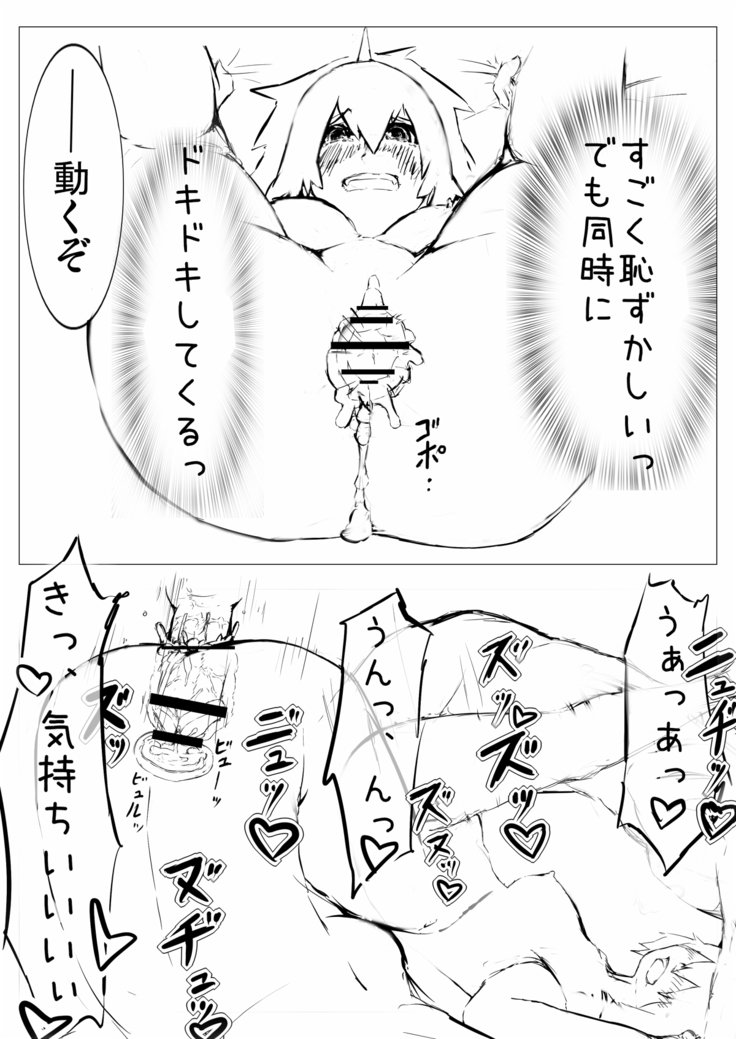 すごく恥ずかしいっ
でも同時に
ドキドキしてくるっ
――動くぞ
ゴポ…
うぁっあっ♡
ニュヂュッ♡
ズッ♡ズッ♡
ズヌッ♡
うんっ、んっ♡
ヂュッ♡
ビューッ
ビュルッ
ズッ
ヌヂュッ♡
きっ、気持ちいいいい♡